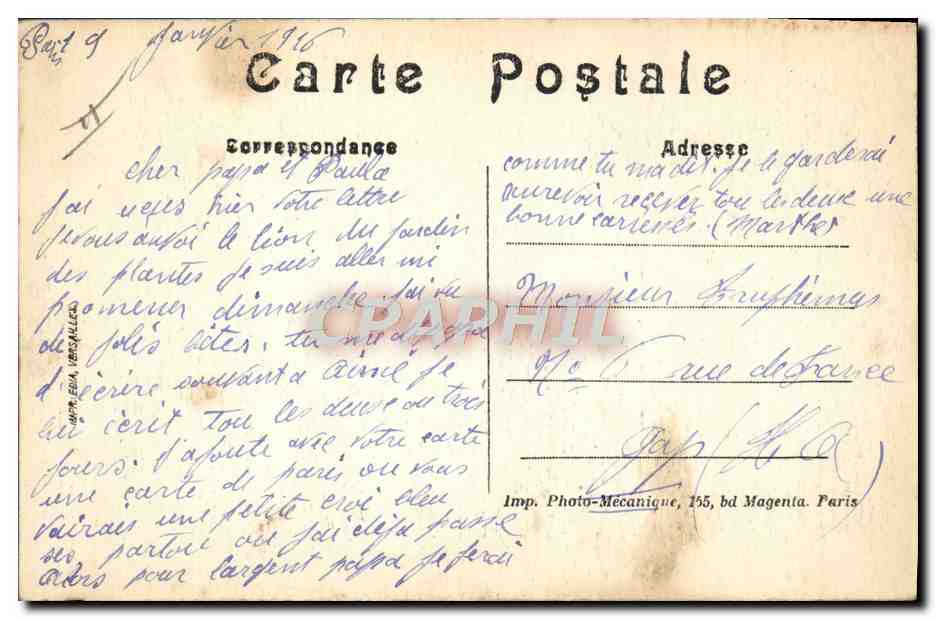 Paris 9 Janvier 1916
Carte Postale
Correspondance
Cher papa et Paula
j'ai reçus hier votre lettre
je vous anvoi le lion du jardin
des plantes je suis aller mi
promener dimanche j'ai vu
de jolis bêtes. tu me
d'écrire souvant a Aimé je
lui écrit tou les deuse ou trois
jours. J'ajoute avec votre carte
une carte de paris ou vous
vairais une petite croi bleu
ses partou ou j'ai déja passe
alors pour l'argent papa je ferai
IMPR. EDIA, VERSAILLES
Adresse
comme tu ma dit. je le garderai
aurevoir recever tou les deux une
bonne (Marthe)
Monsieur
No 6 rue de France
Gap (H A)
Imp. Photo-Mécanique, 155, bd Magenta. Paris
CPAPHIL